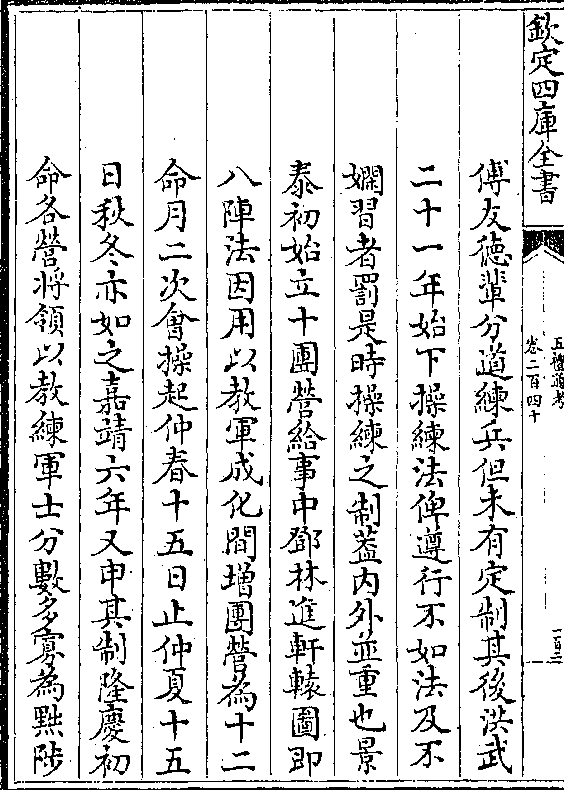 欽定四庫全書
五禮通考
卷二百四十
傅友徳輩分道練兵但未有定制其後洪武
二十一年始下操練法俾遵行不如法及不
嫻習者罰是時操練之制葢内外並重也景
泰初始立十團營給事中鄧林進軒轅圖即
八陣法因用以教軍成化間増團營為十二
命月二次會操起仲春十五日止仲夏十五
日秋冬亦如之嘉靖六年又申其制隆慶初
命各營將領以教練軍士分數多寡為黜陟